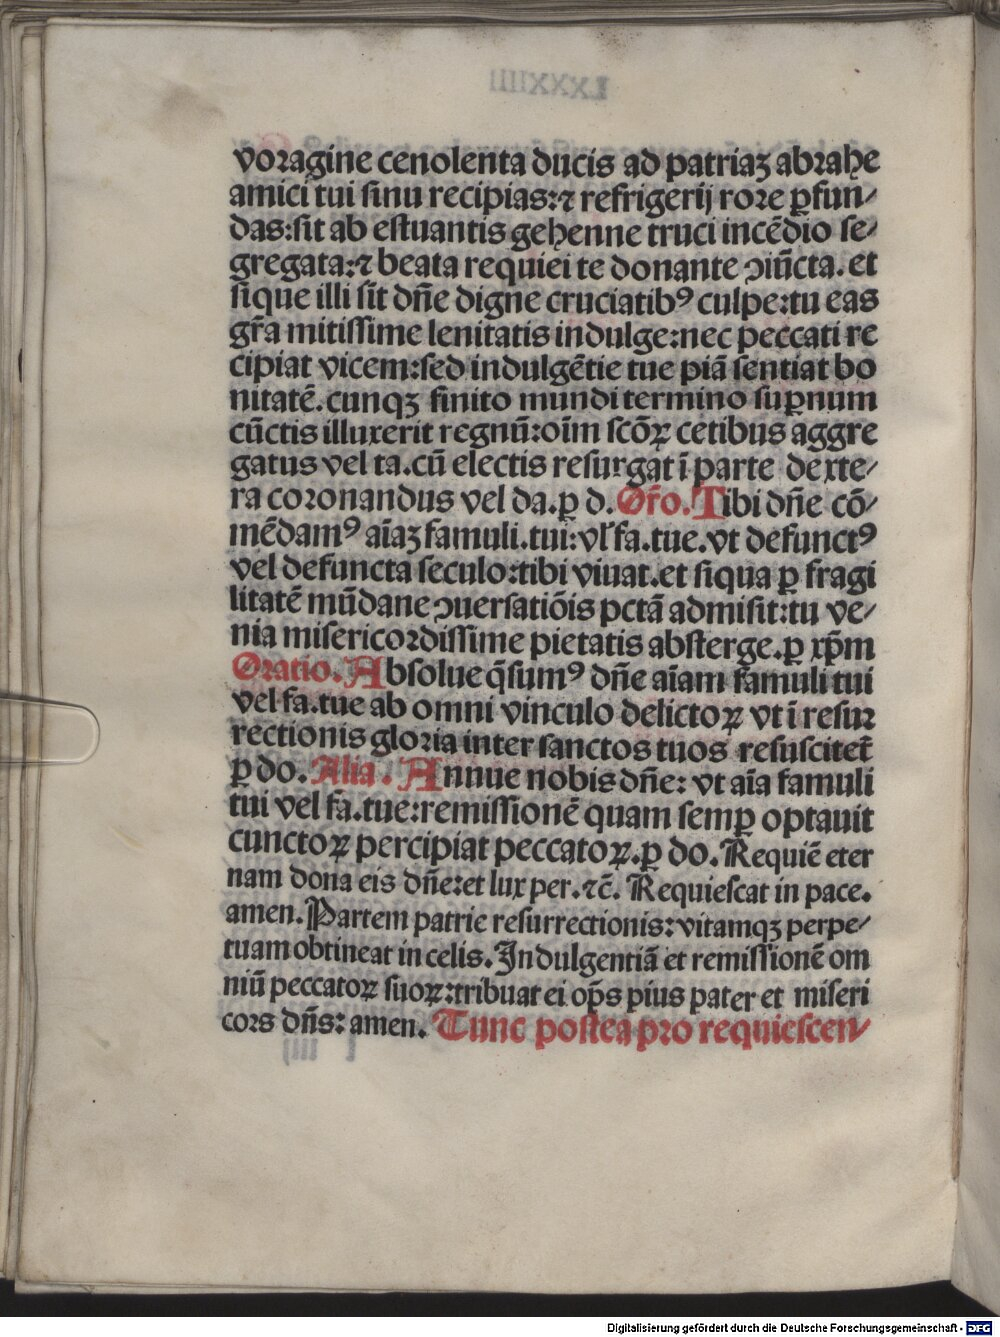 voragine cenolenta ducis ad patriaꝫ abrahe
amici tui sinu recipias:⁊ refrigerij rore ꝑfun/
das:sit ab estuantis gehenne truci incēdio se/
gregata:⁊ beata requiei te donante ↄiūcta. et
sique illi sīt dn̄e digne cruciatibꝰ culpe:tu eas
gr̄a mitissime lenitatis indulge:nec peccati re
cipiat vicem:sed indulgētie tue piā sentiat bo
nitatē.cunqꝫ finito mundi termino suꝑnum
cūctis illuxerit regnū:oīm scōꝝ cetibus aggre
gatus vel ta.cū electis resurgat ī parte dexte/
ra coronandus vel da.ꝑ d. Or̄o. Tibi dn̄e cō/
mēdamꝰ aīaꝫ famuli.tui:vl̄ fa.tue.vt defunctꝰ
vel defuncta seculo:tibi viuat.et siqua ꝑ fragi
litatē mūdane ↄuersatiōis pctā admisit:tu ve/
nia misericordissime pietatis absterge.ꝑ xp̄m
Oratio. Absolue q̄sumꝰ dn̄e aīam famuli tui
vel fa.tue ab omni vinculo delictoꝝ vt ī resur
rectionis gloria inter sanctos tuos resuscitet̄
ꝑ do. Alia. Annue nobis dn̄e: vt aīa famuli
tui vel fa.tue:remissionē quam semꝑ optauit
cunctoꝝ percipiat peccatoꝝ.ꝑ do. Requiē eter
nam dona eis dn̄e:et lux per.⁊c̄. Requiescat in pace.
amen. Partem patrie resurrectionis:vitamqꝫ perpe/
tuam obtineat in celis. Indulgentiā et remissionē om
niū peccatoꝝ suoꝝ:tribuat ei op̄s pius pater et miseri
cors dn̄s: amen. Tunc postea pro requiescen/
Digitalisierung gefördert durch die Deutsche Forschungsgemeinschaft - DFG